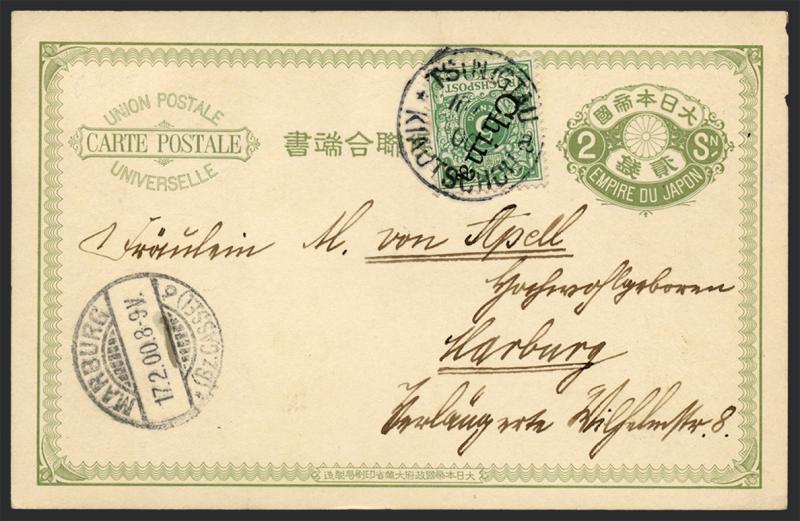 UNION POSTALE
CARTE POSTALE
UNIVERSELLE
聯合端書
TSINGTAU
KIAUTSCHOU
a
CHSPOST
China
大日本帝國
2 SN
貳錢
EMPIRE DU JAPON
Fräulein M. von Apell
Hochwohlgeboren
Marburg
Verlängerte Wilhelmstr. 8.
MARBURG
17.2.00. 8-9V.
(BZ. CASSEL)
大日本帝國政府大藏省印刷局製造